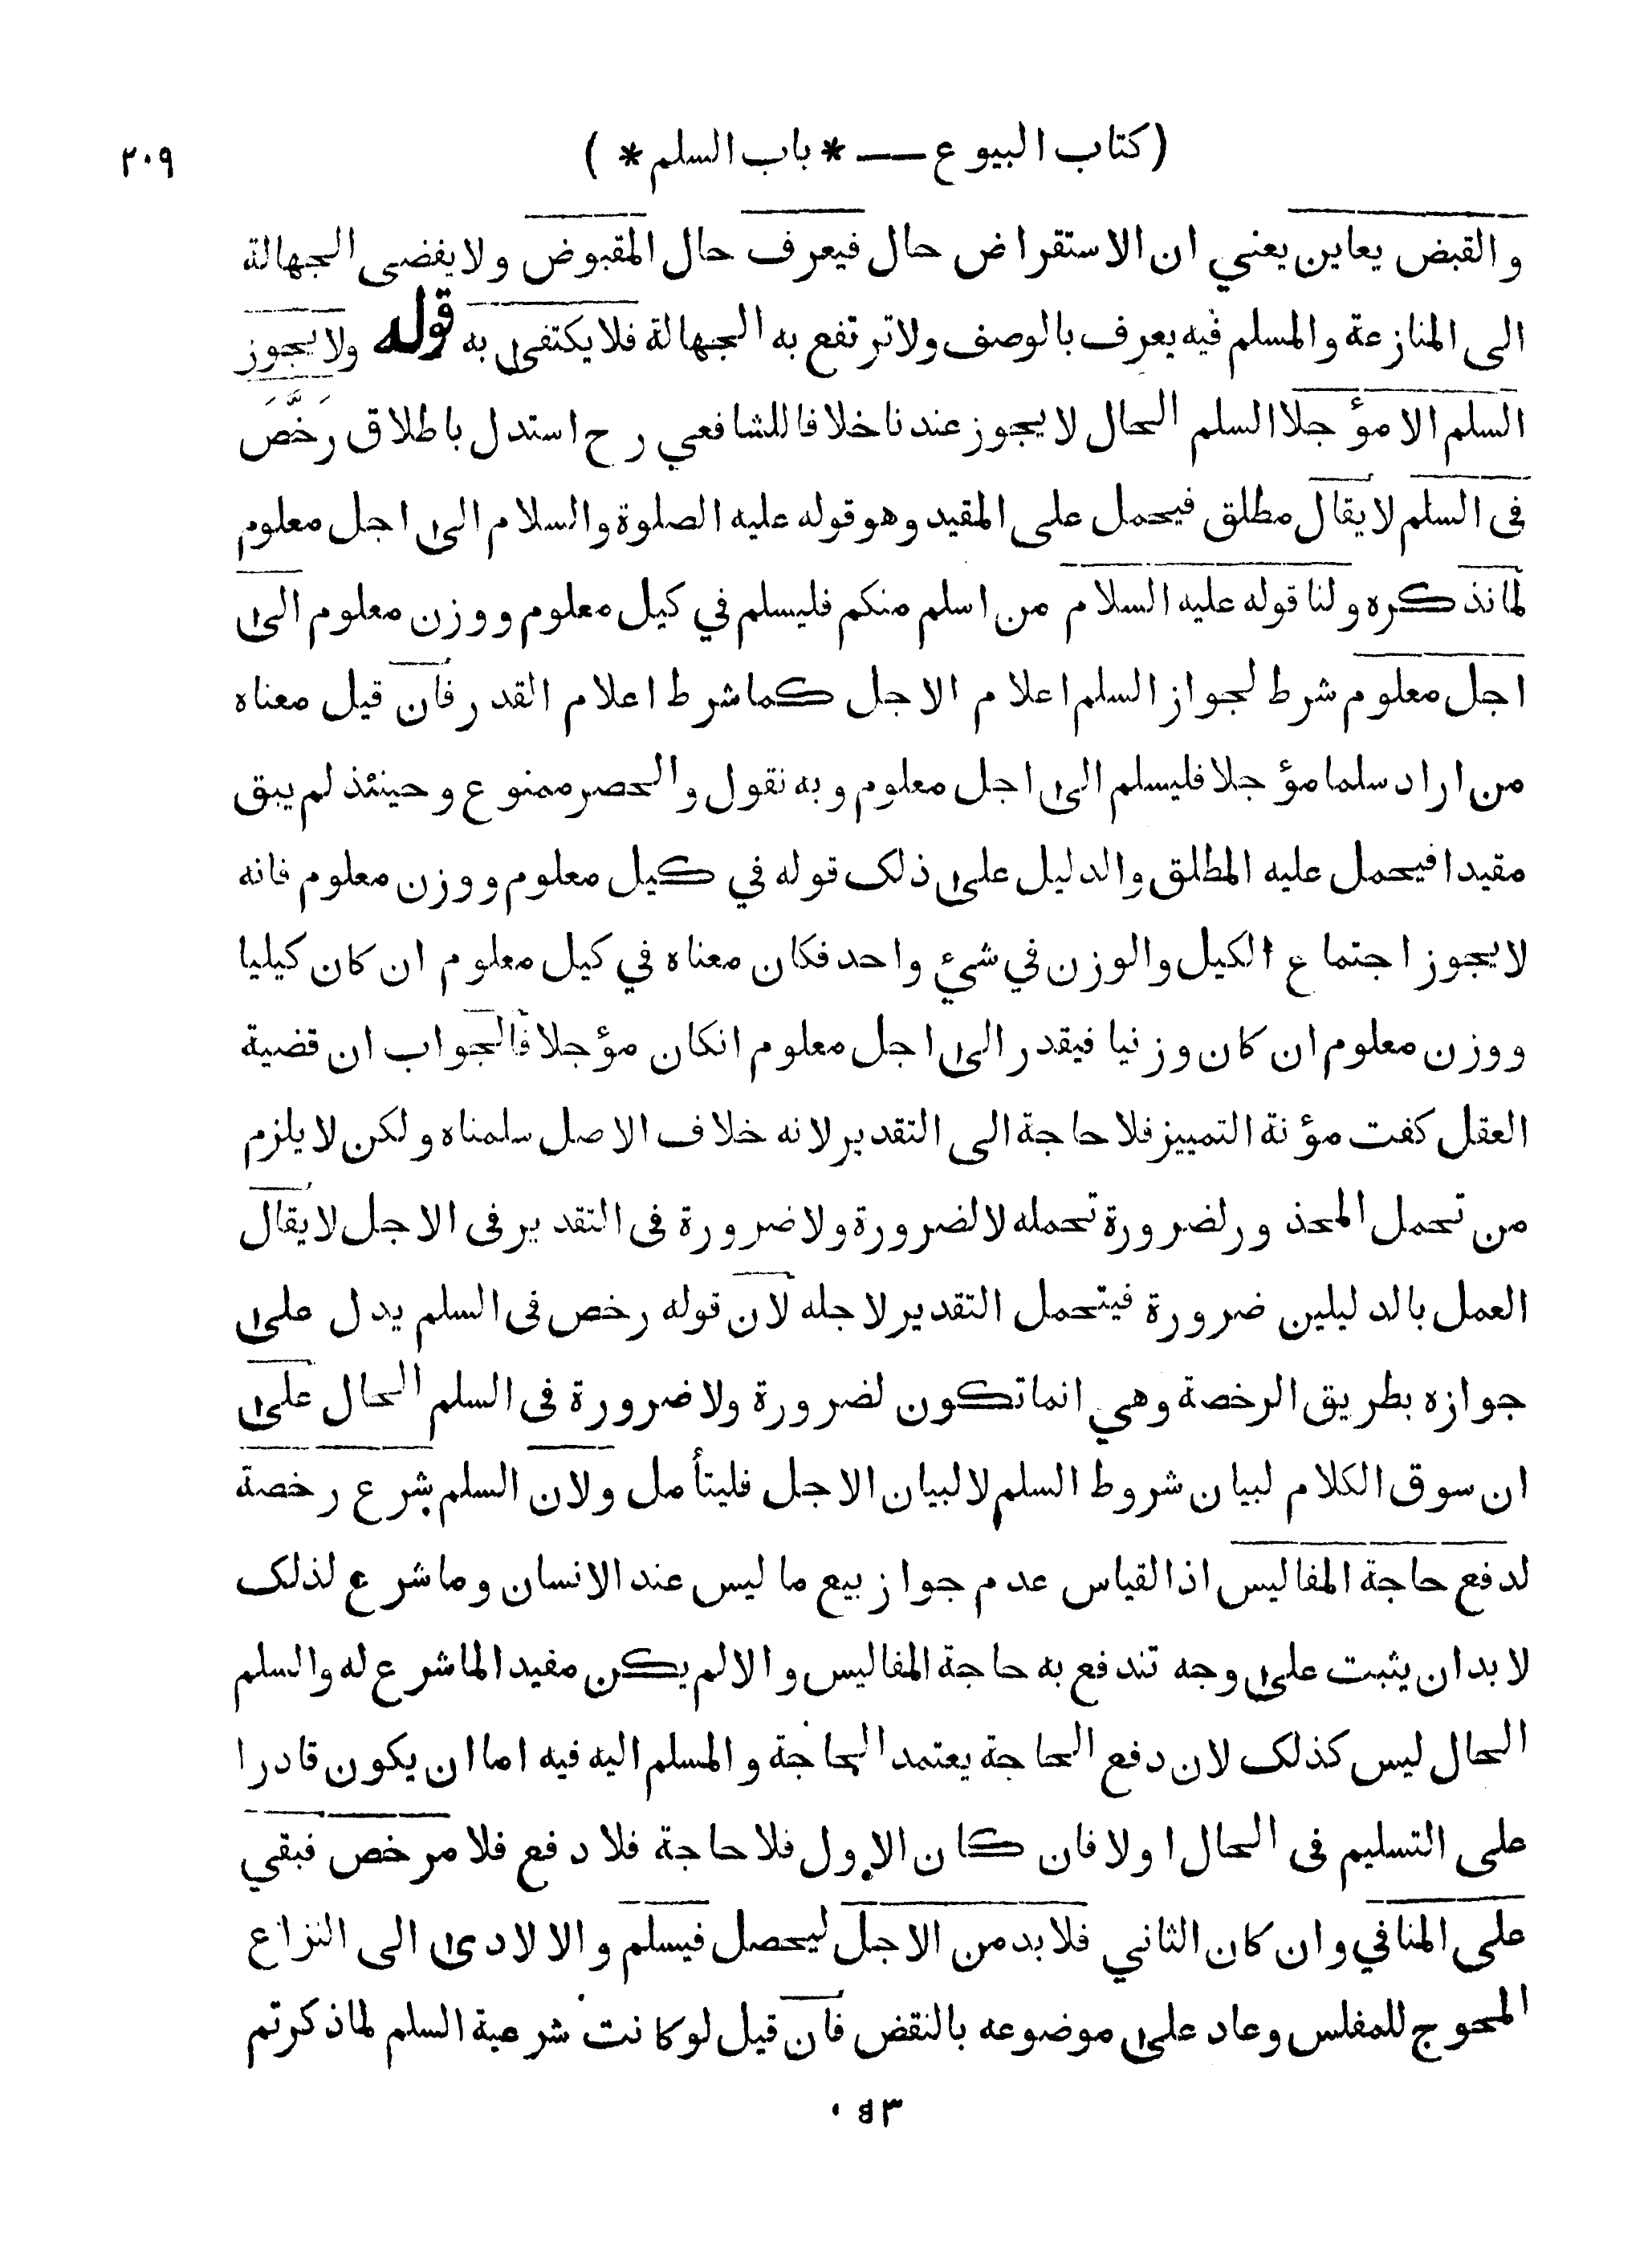 (كتاب البيوع — * باب السلم * ) ٢٠٩
والقبض يعاين يعني ان الاستقراض حال فيعرف حال المقبوض ولا يفضى الجهالة
الى المنازعة والمسلم فيه يعرف بالوصف ولا ترتفع به الجهالة فلا يكتفى به قوله ولا يجوز
السلم الا مؤجلا السلم الحال لا يجوز عندنا خلافا للشافعي رح استدل باطلاق رَخَّصَ
فى السلم لا يقال مطلق فيحمل على المقيد وهو قوله عليه الصلوة والسلام الى اجل معلوم
لما نذكره ولنا قوله عليه السلام من اسلم منكم فليسلم في كيل معلوم ووزن معلوم الى
اجل معلوم شرط لجواز السلم اعلام الاجل كما شرط اعلام القدر فان قيل معناه
من اراد سلما مؤجلا فليسلم الى اجل معلوم وبه نقول والحصر ممنوع وحينئذ لم يبق
مقيدا فيحمل عليه المطلق والدليل على ذلك قوله في كيل معلوم ووزن معلوم فانه
لا يجوز اجتماع الكيل والوزن في شئ واحد فكان معناه في كيل معلوم ان كان كيليا
ووزن معلوم ان كان وزنيا فيقدر الى اجل معلوم انكان مؤجلا فالجواب ان قضية
العقل كفت مؤنة التمييز فلا حاجة الى التقدير لانه خلاف الاصل سلمناه ولكن لا يلزم
من تحمل المحذور لضرورة تحمله لا لضرورة ولا ضرورة فى التقدير فى الاجل لا يقال
العمل بالدليلين ضرورة فيتحمل التقدير لاجله لان قوله رخص فى السلم يدل على
جوازه بطريق الرخصة وهي انما تكون لضرورة ولا ضرورة فى السلم الحال على
ان سوق الكلام لبيان شروط السلم لا لبيان الاجل فليتأمل ولان السلم شرع رخصة
لدفع حاجة المفاليس اذ القياس عدم جواز بيع ما ليس عند الانسان وما شرع لذلك
لا بد ان يثبت على وجه تندفع به حاجة المفاليس والا لم يكن مفيدا لما شرع له والسلم
الحال ليس كذلك لان دفع الحاجة يعتمد الحاجة والمسلم اليه فيه اما ان يكون قادرا
على التسليم فى الحال اولا فان كان الاول فلا حاجة فلا دفع فلا مرخص فبقي
على المنافي وان كان الثاني فلا بد من الاجل ليحصل فيسلم والا لادى الى النزاع
المحوج للمفلس وعاد على موضوعه بالنقض فان قيل لو كانت شرعية السلم لما ذكرتم